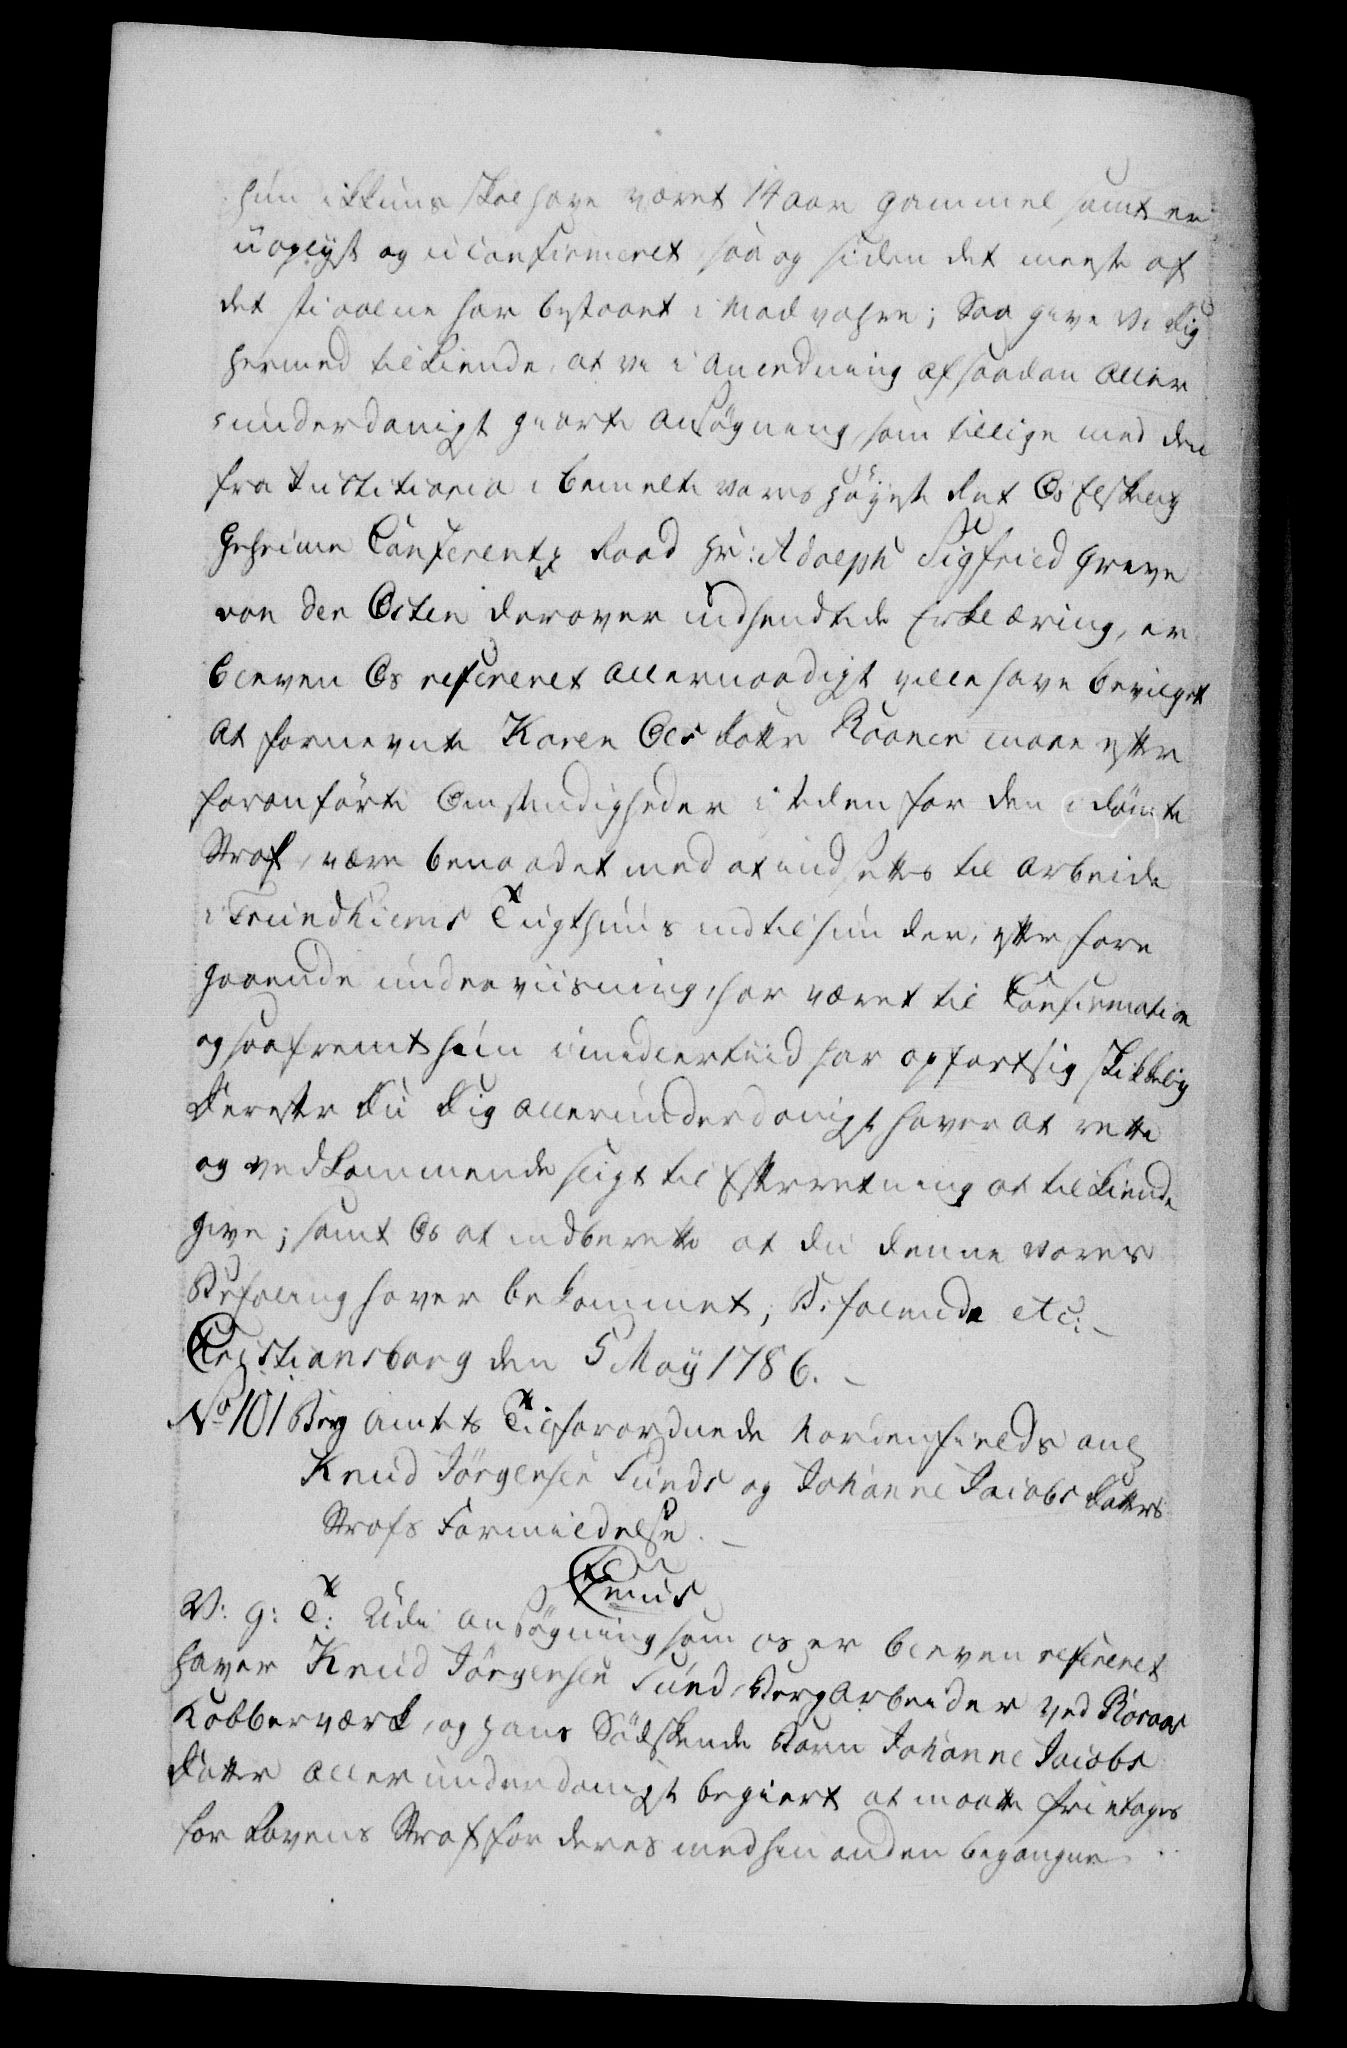 hun ikkuns skal have været 14 aar gammel samt er
uoplyst og uconfirmeret, saa og siden det meeste af
det stiaalne har bestaaet i Mad vahre; Saa give Vi dig
hermed tilkiende, at vi i Anledning af saadan Aller
underdanigst giorte Ansøgning, som tillige med den
fra Justitiario i bemelte vores Høyeste Ret Os Elskelig
Geheime Conferentz Raad Hr: Adolph Sigfried Greve
von der Osten derover indsendtede Erklæring, er
bleven Os refereret Allernaadigst ville have bevilget
At fornevnte Karen Ols datter Raanen maae efter
foranførte Omstendigheder i steden for den idømte
Straf, være benaadet med at indsettes til Arbeide
i Trundhiems Tugthuus indtil hun der, efter fore
gaaende underviisning, har været til Confirmation
og saafremt hun imidlertiid har opført sig skikkelig
Derefter du dig allerunderdanigst haver at rette
og vedkommende sligt til Efterretning at tilkiende
give; samt Os at indberette at du denne vores
Befaling haver bekommet, Befalende etc:
Christiansborg den 5 May 1786.
No 101 Berg Amtets Tilforordnede Nordenfields ang
Knud Jørgensen Sunds og Johanne Jacobs datters
Strafs Formildelse.
V: g: T: Udi Ansøgning som os er bleven refereret
haver Knud Jørgensen Sund, Bergarbeider ved Røraas
Kobberværk, og hans Sødskende Barn Johanne Jacobs
datter allerunderdanigst begiert at maatte fritages
for Lovens Straf for deres med hin anden begangne